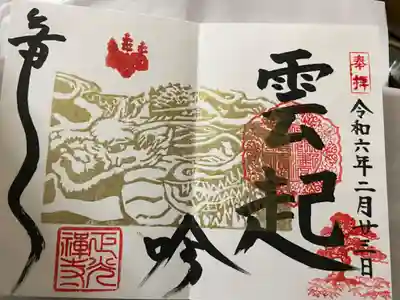 奉拝
令和六年二月廿三日
雲起
竜
吟
正光
禅寺